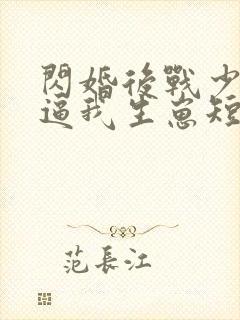 閃婚後戰少
逼我生崽短
范長江